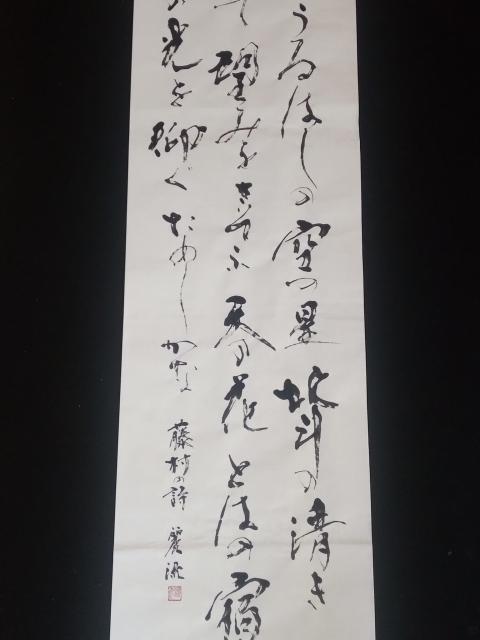 うるはしの空の星北斗の清き
て望みをさそふ天の花とはの宿
の光を仰ぐためしかな
藤村の詩